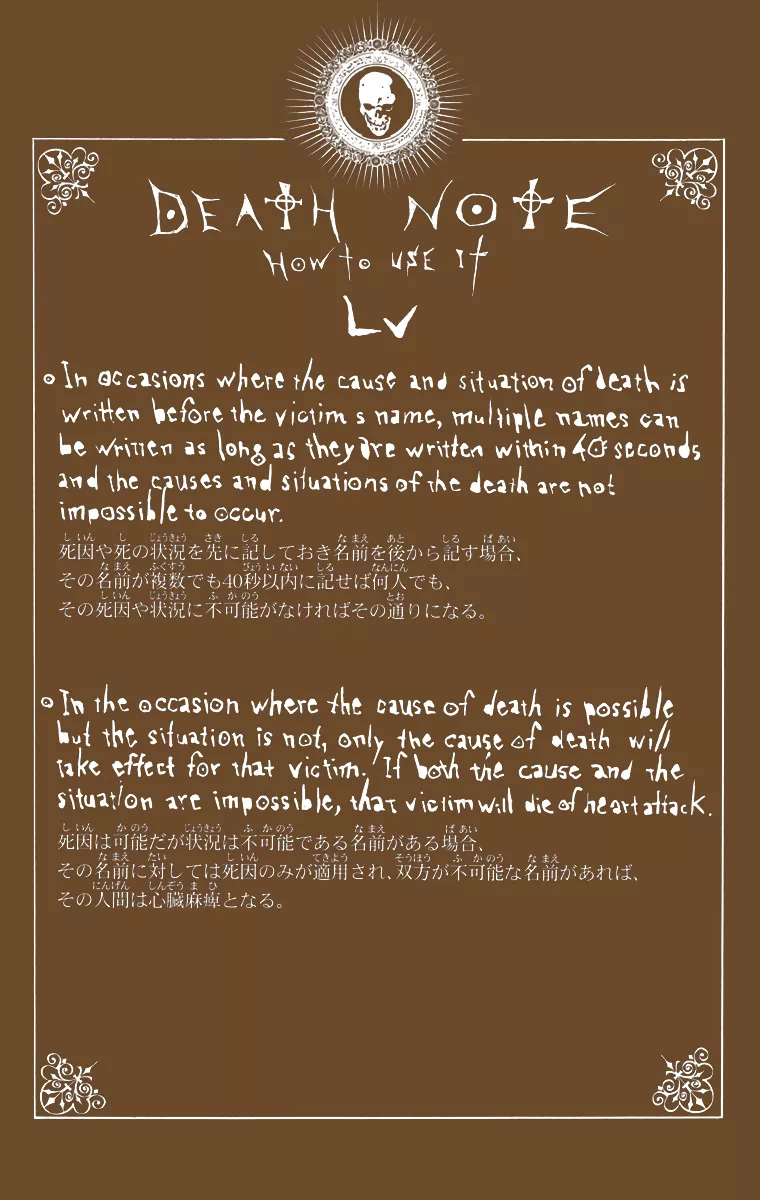 DEATH NOTE
HOW to USE IT
LV
In occasions where the cause and situation of death is
written before the victim s name, multiple names can
be written as long as they are written within 40 seconds
and the causes and situations of the death are not
impossible to occur.
死因や死の状況を先に記しておき名前を後から記す場合、
その名前が複数でも40秒以内に記せば何人でも、
その死因や状況に不可能がなければその通りになる。
In the occasion where the cause of death is possible
but the situation is not, only the cause of death will
take effect for that victim. If both the cause and the
situation are impossible, that victim will die of heart attack.
死因は可能だが状況は不可能である名前がある場合、
その名前に対しては死因のみが適用され、双方が不可能な名前があれば、
その人間は心臓麻痺となる。